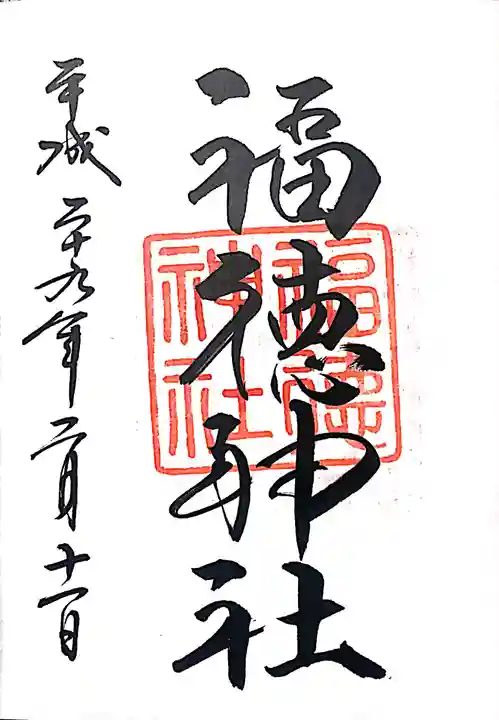 福徳神社
福徳神社
平成二十九年二月十一日